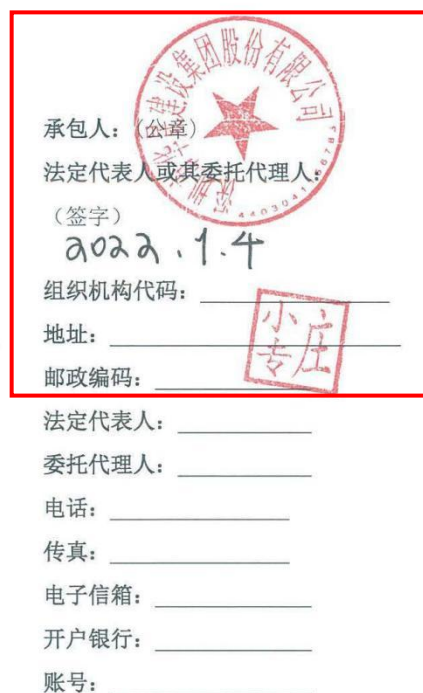 建设集团股份有限公司
承包人：（公章）
法定代表人或其委托代理人：
（签字）
2022.1.4
组织机构代码：
地址：
小庄
专
邮政编码：
法定代表人：
委托代理人：
电话：
传真：
电子信箱：
开户银行：
账号：